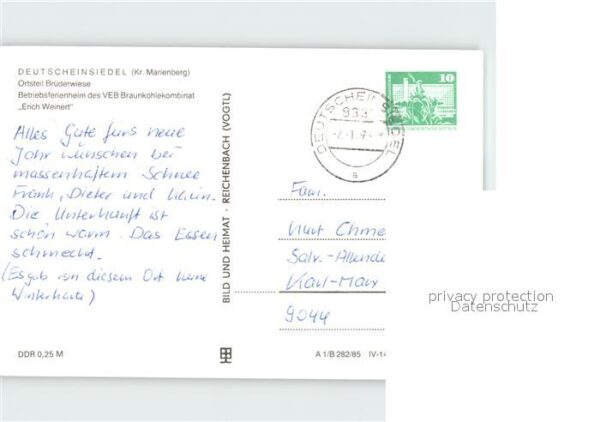 DEUTSCHEINSIEDEL (Kr. Marienberg)
Ortsteil Brüderwiese
Betriebsferienheim des VEB Braunkohlekombinat
„Erich Weinert"
Alles Gute fürs neue
Jahr wünschen bei
massenhaftem Schnee
Frank, Dieter und Karin.
Die Unterkunft ist
schön warm. Das Essen
schmeckt.
(Es gab von diesem Ort keine
Winterkarte)
DDR 0,25 M
BILD UND HEIMAT · REICHENBACH (VOGTL)
DEUTSCHEINSIEDEL
933
a
10
Fam.
Kurt
Salv.-Allende
Karl-Marx
9044
A 1/B 282/85 IV-14
privacy protection
Datenschutz